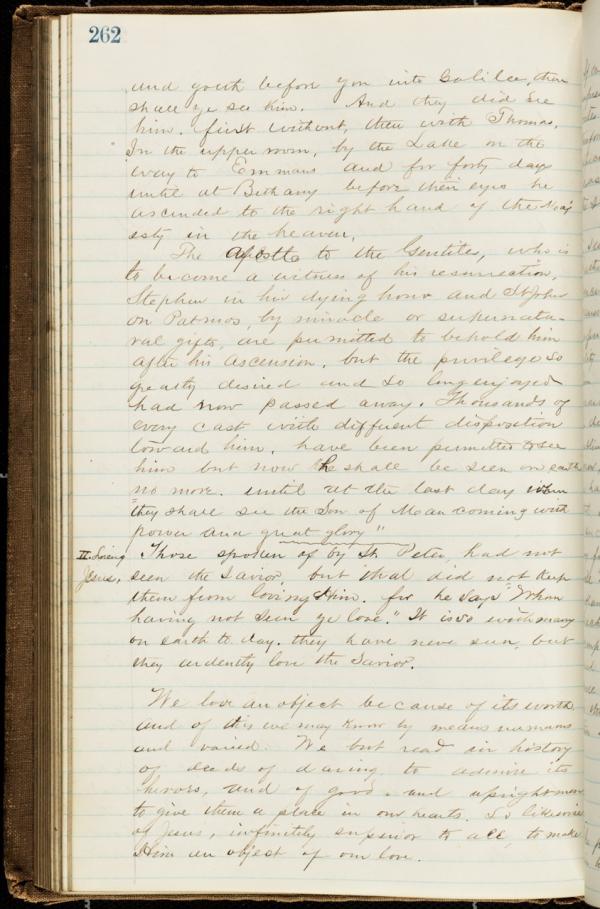 262
and goeth before you into Galilee, there
shall ye see him. And they did see
him. first without, then with Thomas,
In the upper room, by the Lake on the
way to Emmaus and for forty days
until at Bethany before their eyes he
ascended to the right hand of the Maj
esty in the heaven.
The Apostle to the Gentiles, who is
to become a witness of his resurrection,
Stephen in his dying hour and St John
on Patmos, by miracle or supernatu-
ral gifts, are permitted to behold him
after his ascension, but the privilege so
greatly desired and so long enjoyed
had now passed away. Thousands of
every cast with different disposition
toward him, have been permitted to see
him but now he shall be seen on earth
no more. until at the last day when
"they shall see the Son of Man coming with
power and great glory"
II. Loving Jesus.
Those spoken of by St. Peter, had not
seen the Savior, but that did not keep
them from loving Him. for he says "Whom
having not seen ye love." It is so with many
on earth to day. they have never seen, but
they ardently love the Savior.
We love an object because of its worth
and of this we may know by means numerous
and varied. We but read in history
of deeds of daring to admire its
heroes, and of good and upright men
to give them a place in our hearts. So likewise
of Jesus, infinitely superior to all, to make
Him an object of our love.